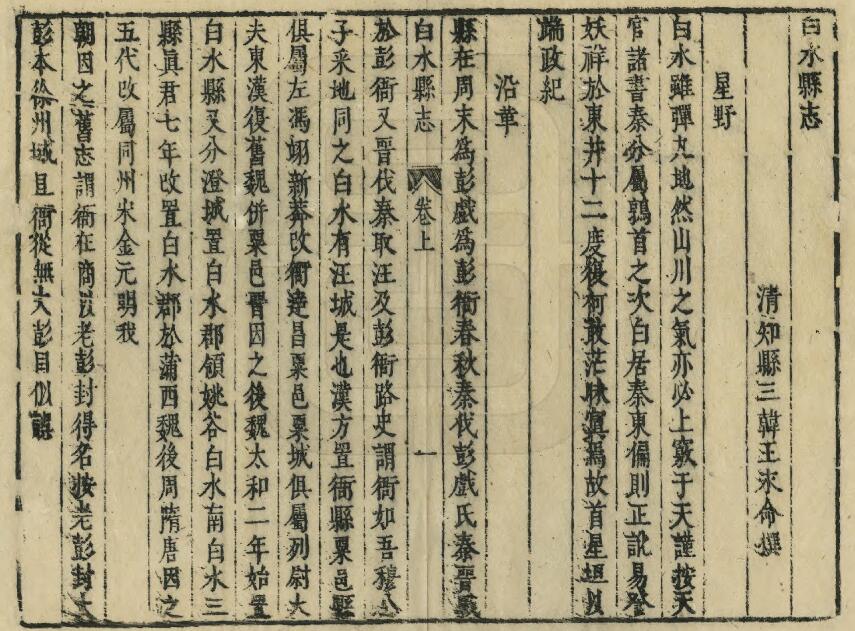 白水縣志
清知縣三韓王永命撰
星野
白水雖彈丸地然山川之氣亦必上竅于天謹按天
官諸書秦分屬鶉首之次白居秦東偏則正訛易登
妖祥於東井十二度後何敢茫昧寘焉故首星垣以
端政紀
沿革
縣在周末爲彭戲爲彭衙春秋秦伐彭戲氏秦晉戰
白水縣志 卷上 一
於彭衙又晉伐秦取汪及彭衙路史謂衙如吾穆公
子采地同之白水有汪城是也漢方置衙縣粟邑縣
俱屬左馮翊新莽改衙達昌粟邑粟城俱屬列尉大
夫東漢復舊魏併粟邑晉因之後魏太和二年始置
白水縣又分澄城置白水郡領姚谷白水南白水三
縣眞君七年改置白水郡於蒲西魏後周隋唐因之
五代改屬同州宋金元明我
朝因之舊志謂衙在商以老彭封得名按老彭封大
彭本徐州域且衙從無大彭目似誤